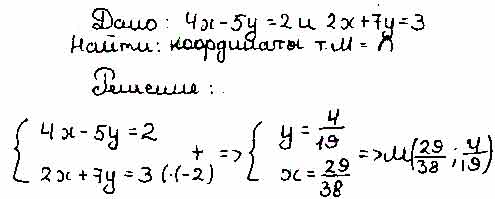 Дано: 4x-5y=2 и 2x+7y=3
Найти: координаты т.М = ∩
Решение:
{ 4x-5y=2 2x+7y=3 (·(-2) + => { y=4/19 x=29/38 => M(29/38; 4/19)